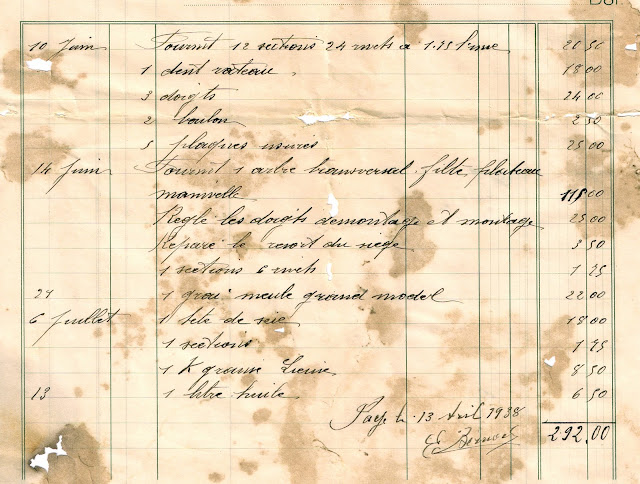 10 Juin Fournit 12 sections 24 rivets a 1.75 l'une 20 50
1 dent rateau 18 00
3 doigts 24 00
2 boulon 2 50
5 plaques usures 25 00
14 Juin Fournit 1 arbre transversal. filté, plateau
manivelle 115 00
Reglé les doigts demontage et montage 25 00
Reparé le resort du siege 3 50
1 sections 6 rivets 1 75
1 meule grand model 22 00
6 Juillet 1 tete de scie 18 00
1 sections 1 75
1 K graisse 8 50
13 1 litre huile 6 50
Payé le. 13 Avril 1938
292.00